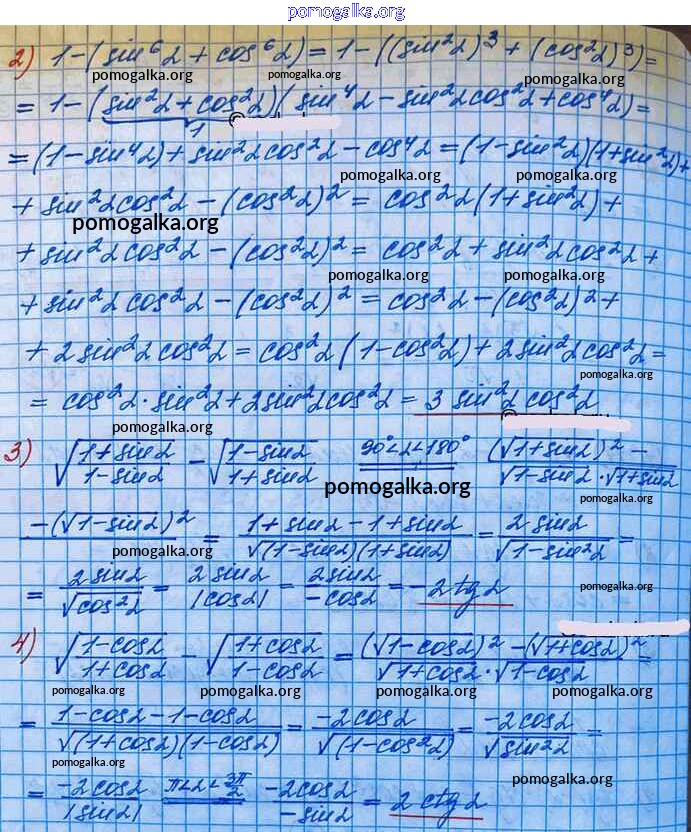 pomogalka.org
2) 1-(sin⁶α + cos⁶α) = 1-((sin²α)³ + (cos²α)³)=
pomogalka.org pomogalka.org
= 1-(sin²α + cos²α)(sin⁴α - sin²α cos²α + cos⁴α)=
1
=(1-sin⁴α)+ sin²α cos²α - cos⁴α = (1-sin²α)(1+sin²α)+
pomogalka.org pomogalka.org
+ sin²α cos²α - (cos²α)² = cos²α(1+sin²α)+
pomogalka.org
+ sin²α cos²α - (cos²α)² = cos²α + sin²α cos²α +
pomogalka.org pomogalka.org
+ sin²α cos²α - (cos²α)² = cos²α - (cos²α)² +
+ 2 sin²α cos²α = cos²α (1-cos²α)+ 2 sin²α cos²α =
pomogalka.org
= cos²α · sin²α + 2sin²α cos²α = 3 sin²α cos²α
pomogalka.org
3) √((1+sinα)/(1-sinα)) - √((1-sinα)/(1+sinα)) 90°<α<180° = ((√(1+sinα))² -)/(√(1-sinα) · √(1+sinα))
pomogalka.org pomogalka.org
(-(√(1-sinα))²)/ = (1+sinα-1+sinα)/(√((1-sinα)(1+sinα))) = (2sinα)/(√(1-sin²α)) =
pomogalka.org
= (2sinα)/(√(cos²α)) = (2sinα)/(|cosα|) = (2sinα)/(-cosα) = -2tgα
pomogalka.org
4) √((1-cosα)/(1+cosα)) - √((1+cosα)/(1-cosα)) = ((√(1-cosα))² - (√(1+cosα))²)/(√(1+cosα) · √(1-cosα)) =
pomogalka.org pomogalka.org pomogalka.org pomogalka.org
= (1-cosα-1-cosα)/(√((1+cosα)(1-cosα))) = (-2cosα)/(√(1-cos²α)) = (-2cosα)/(√(sin²α)) =
pomogalka.org
= (-2cosα)/(|sinα|) π<α<3π/2 = (-2cosα)/(-sinα) = 2ctgα